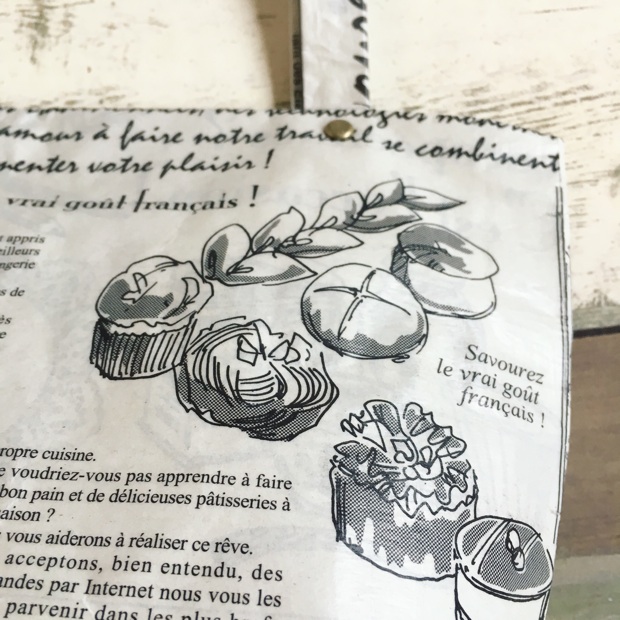 amour à faire notre travail se combinent
menter votre plaisir !
vrai goût français !
appris
eilleurs
ngerie
s de
ès
e
Savourez
le vrai goût
français !
ropre cuisine.
e voudriez-vous pas apprendre à faire
bon pain et de délicieuses pâtisseries à
aison ?
vous aiderons à réaliser ce rêve.
acceptons, bien entendu, des
andes par Internet nous vous les
parvenir dans les plus